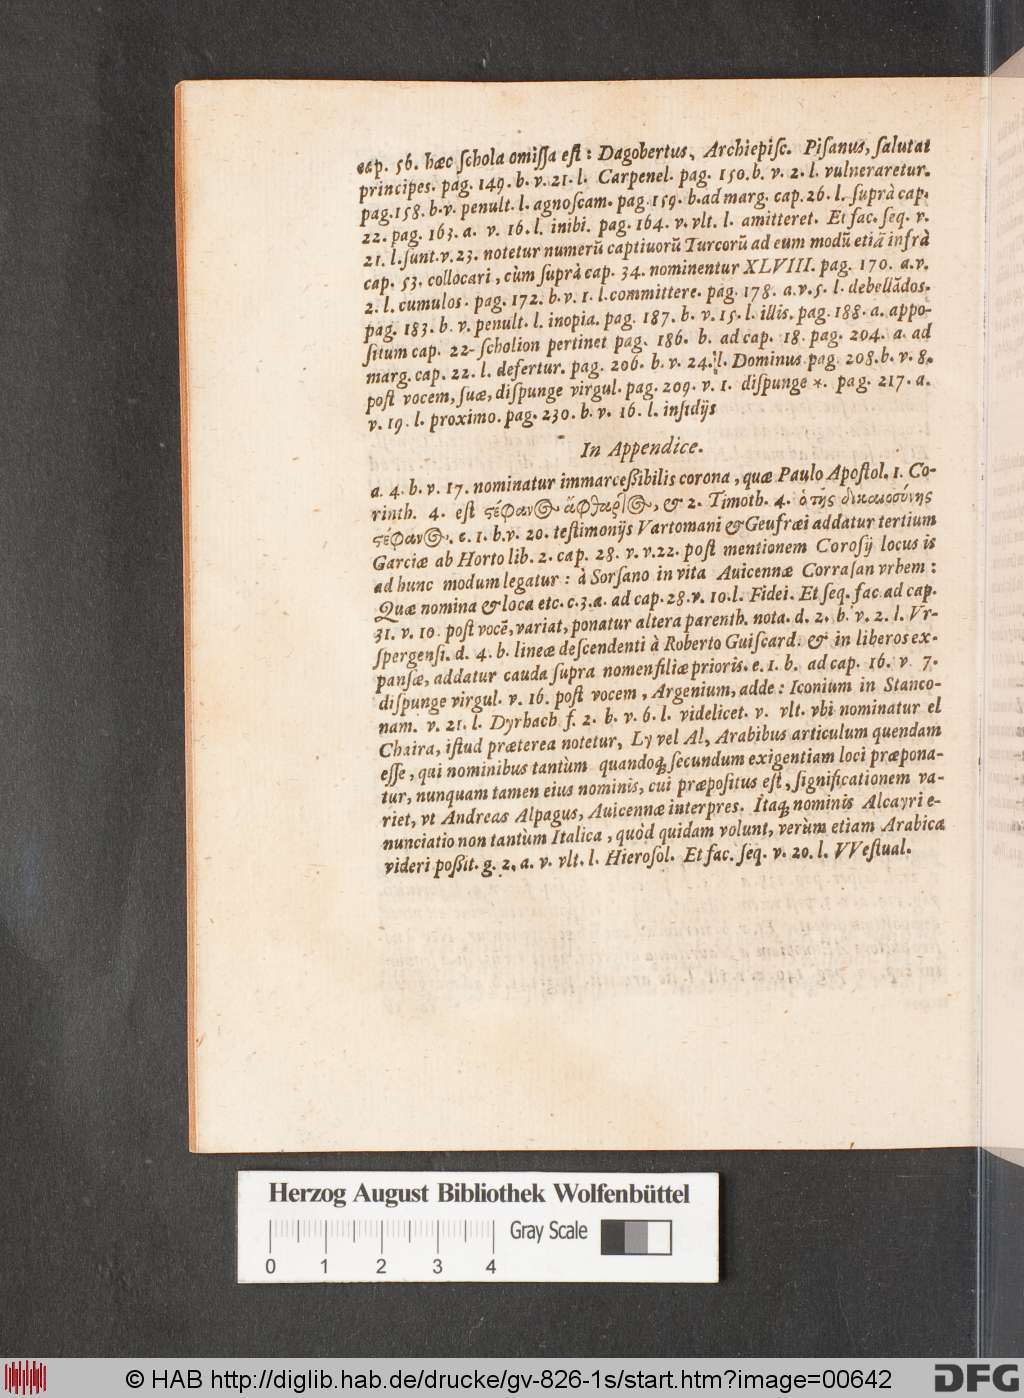 cap. 56. hæc schola omissa est: Dagobertus, Archiepisc. Pisanus, salutat
principes. pag. 149. b. v. 21. l. Carpenel. pag. 150. b. v. 2. l. vulneraretur.
pag. 158. b. v. penult. l. agnoscam. pag. 159. b. ad marg. cap. 26. l. suprà cap.
22. pag. 163. a. v. 16. l. inibi. pag. 164. v. vlt. l. amitteret. Et fac. seq. v.
21. l. sunt. v. 23. notetur numerũ captiuorũ Turcorũ ad eum modũ etiã infrà
cap. 53. collocari, cùm suprà cap. 34. nominentur XLVIII. pag. 170. a. v.
2. l. cumulos. pag. 172. b. v. 1. l. committere. pag. 178. a. v. 5. l. debellãdos.
pag. 183. b. v. penult. l. inopia. pag. 187. b. v. 15. l. illis. pag. 188. a. appo-
situm cap. 22. scholion pertinet pag. 186. b. ad cap. 18. pag. 204. a. ad
marg. cap. 22. l. defertur. pag. 206. b. v. 24. l. Dominus pag. 208. b. v. 8.
post vocem, suæ, dispunge virgul. pag. 209. v. 1. dispunge *. pag. 217. a.
v. 19. l. proximo. pag. 230. b. v. 16. l. insidijs
In Appendice.
a. 4. b. v. 17. nominatur immarcessibilis corona, quæ Paulo Apostol. 1. Co-
rinth. 4. est ςέφανος ἄφθαρτος, & 2. Timoth. 4. ὁ τῆς δικαιοσύνης
ςέφανος. c. 1. b. v. 20. testimonijs Vartomani & Geufræi addatur tertium
Garciæ ab Horto lib. 2. cap. 28. v. v. 22. post mentionem Corosij locus is
ad hunc modum legatur: à Sorsano in vita Auicennæ Corrasan vrbem:
Quæ nomina & loca etc. c. 3. a. ad cap. 28. v. 10. l. Fidei. Et seq. fac. ad cap.
31. v. 10. post vocẽ, variat, ponatur altera parenth. nota. d. 2. b. v. 2. l. Vr-
spergensi. d. 4. b. lineæ descendenti à Roberto Guiscard. & in liberos ex-
pansæ, addatur cauda supra nomen filiæ prioris. e. 1. b. ad cap. 16. v. 7.
dispunge virgul. v. 16. post vocem, Argenium, adde: Iconium in Stanco-
nam. v. 21. l. Dyrhach f. 2. b. v. 6. l. videlicet. v. vlt. vbi nominatur el
Chaira, istud præterea notetur, Ly vel Al, Arabibus articulum quendam
esse, qui nominibus tantùm quandoq; secundum exigentiam loci præpona-
tur, nunquam tamen eius nominis, cui præpositus est, significationem va-
riet, vt Andreas Alpagus, Auicennæ interpres. Itaq; nominis Alcayri e-
nunciatio non tantùm Italica, quòd quidam volunt, verùm etiam Arabica
videri possit. g. 2. a. v. vlt. l. Hierosol. Et fac. seq. v. 20. l. VVestual.
Herzog August Bibliothek Wolfenbüttel
Gray Scale
0 1 2 3 4
© HAB http://diglib.hab.de/drucke/gv-826-1s/start.htm?image=00642
DFG